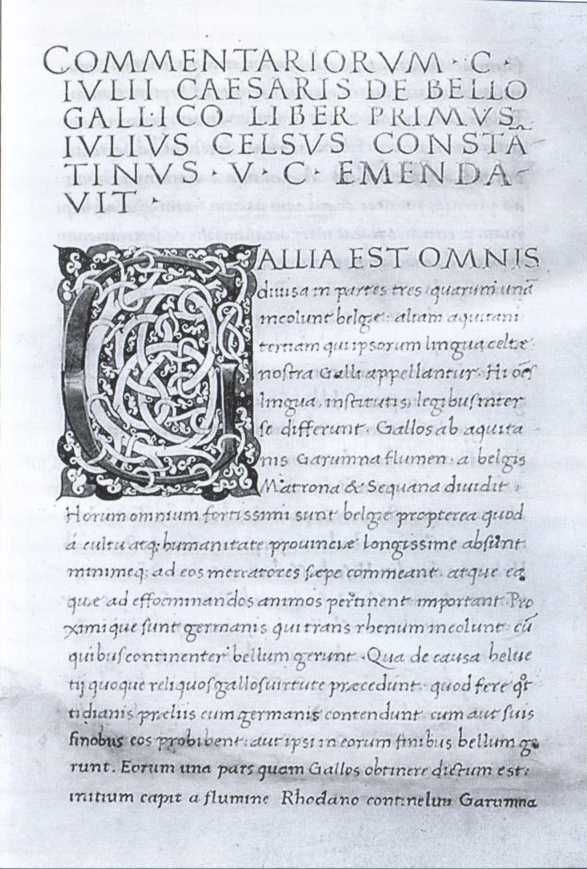 COMMENTARIORVM · C ·
IVLII CAESARIS DE BELLO
GALLICO LIBER PRIMVS
IVLIVS CELSVS CONSTĀ
TINVS · V · C · EMENDA
VIT ·
GALLIA EST OMNIS
diuisa in partes tres quarum unā
incolunt belgę: aliam aquitani
tertiam qui ipsorum lingua celtæ
nostra Galli appellantur. Hi oēs
lingua, institutis, legibus inter
se differunt. Gallos ab aquita
nis Garumna flumen. a belgis
Matrona & Sequana diuidit.
Horum omnium fortissimi sunt belgę propterea quod
a cultu atq; humanitate prouinciæ longissime absunt.
minimeq; ad eos mercatores sæpe commeant. atque ea
quæ ad effoeminandos animos pertinent important. Pro
ximique sunt germanis qui trans rhenum incolunt. cū
quibus continenter bellum gerunt. Qua de causa helue
tij quoque reliquos gallos uirtute præcedunt. quod fere
tidianis præliis cum germanis contendunt. cum aut suis
finobus eos probibent: aut ipsi in eorum finibus bellum ge
runt. Eorum una pars quam Gallos obtinere dictum est:
initium capit a flumine Rhodano continetur Garumna